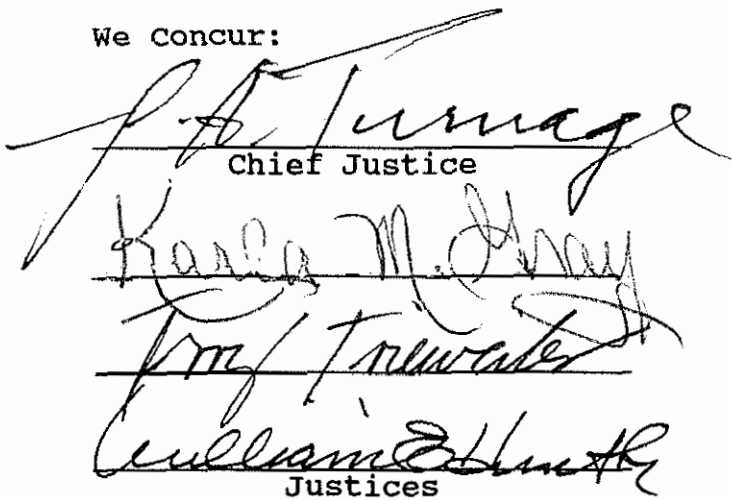 We Concur:
J. A. Turnage
Chief Justice
Karla M. Gray
Terry Trieweiler
William E Hunt Sr
Justices